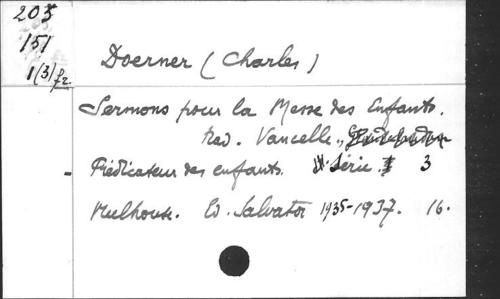 205
151
1(3) fr.
Doerner (Charles)
Sermons pour la Messe des Enfants.
Trad. Vancelle.,
Prédicateur des enfants. Série 3
Mulhouse. Ed. Salvator 1935-1937. 16.